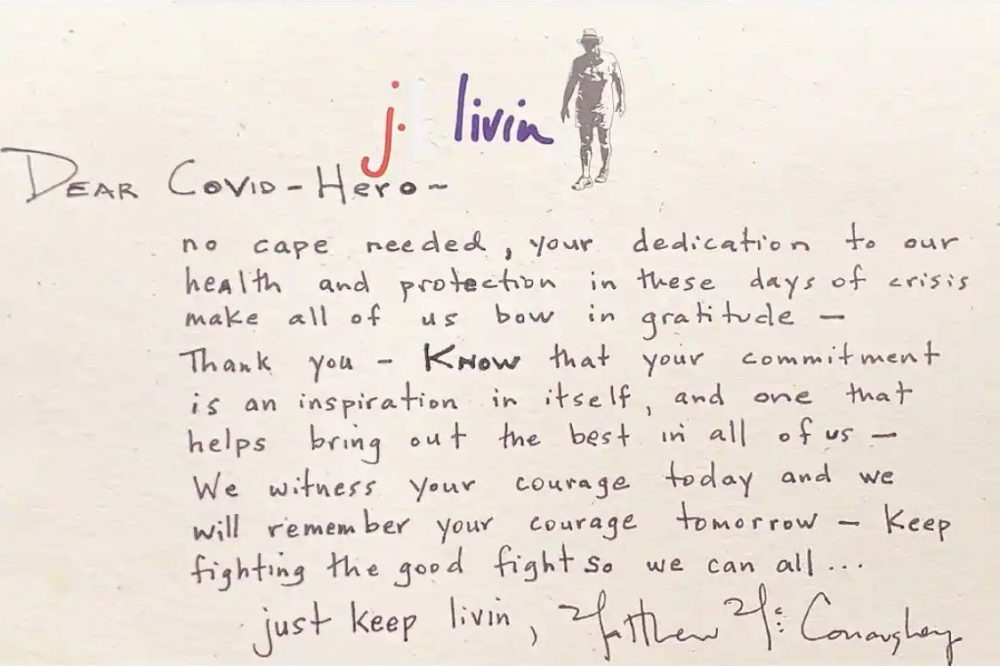 j. livin
DEAR COVID-Hero~
no cape needed, your dedication to our
health and protection in these days of crisis
make all of us bow in gratitude —
Thank you - KNOW that your commitment
is an inspiration in itself, and one that
helps bring out the best in all of us —
We witness your courage today and we
will remember your courage tomorrow - Keep
fighting the good fight so we can all...
just keep livin, Matthew McConaughey